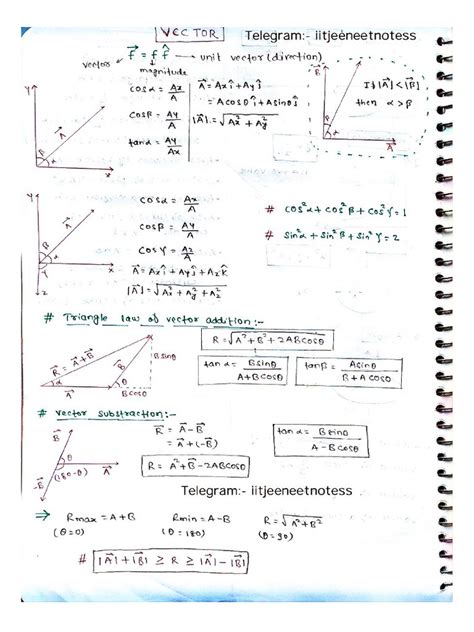 VECTOR Telegram:- iitjeeneetnotess
vector ← f⃗ = f f̂ → unit vector (direction)
magnitude
cosα = Ax/A
cosβ = Ay/A
tanα = Ay/Ax
A⃗ = Ax î + Ay ĵ
= A cosθ î + A sinθ ĵ
|A⃗| = √(Ax² + Ay²)
If |A⃗| < |B⃗|
then α > β
Y
X
A⃗
β
α
B⃗
A⃗
β
α
cosα = Ax/A
cosβ = Ay/A
cosγ = Az/A
A⃗ = Ax î + Ay ĵ + Az k̂
|A⃗| = √(Ax² + Ay² + Az²)
# cos²α + cos²β + cos²γ = 1
# sin²α + sin²β + sin²γ = 2
Y
X
Z
A⃗
β
α
γ
# Triangle law of vector addition:-
R = √(A² + B² + 2AB cosθ)
tanα = B sinθ / A + B cosθ
tanβ = A sinθ / B + A cosθ
R⃗ = A⃗ + B⃗
B⃗
B sinθ
α
θ
A⃗
B cosθ
# Vector substraction:-
R⃗ = A⃗ - B⃗
= A⃗ + (-B⃗)
R = A² + B² - 2AB cosθ
tanα = B sinθ / A - B cosθ
B⃗
θ
(180-θ)
A⃗
-B⃗
Telegram:- iitjeeneetnotess
⇒ Rmax = A + B Rmin = A - B R = √(A² + B²)
(θ = 0) (θ = 180) (θ = 90)
# |A⃗| + |B⃗| ≥ R ≥ |A⃗| - |B⃗|